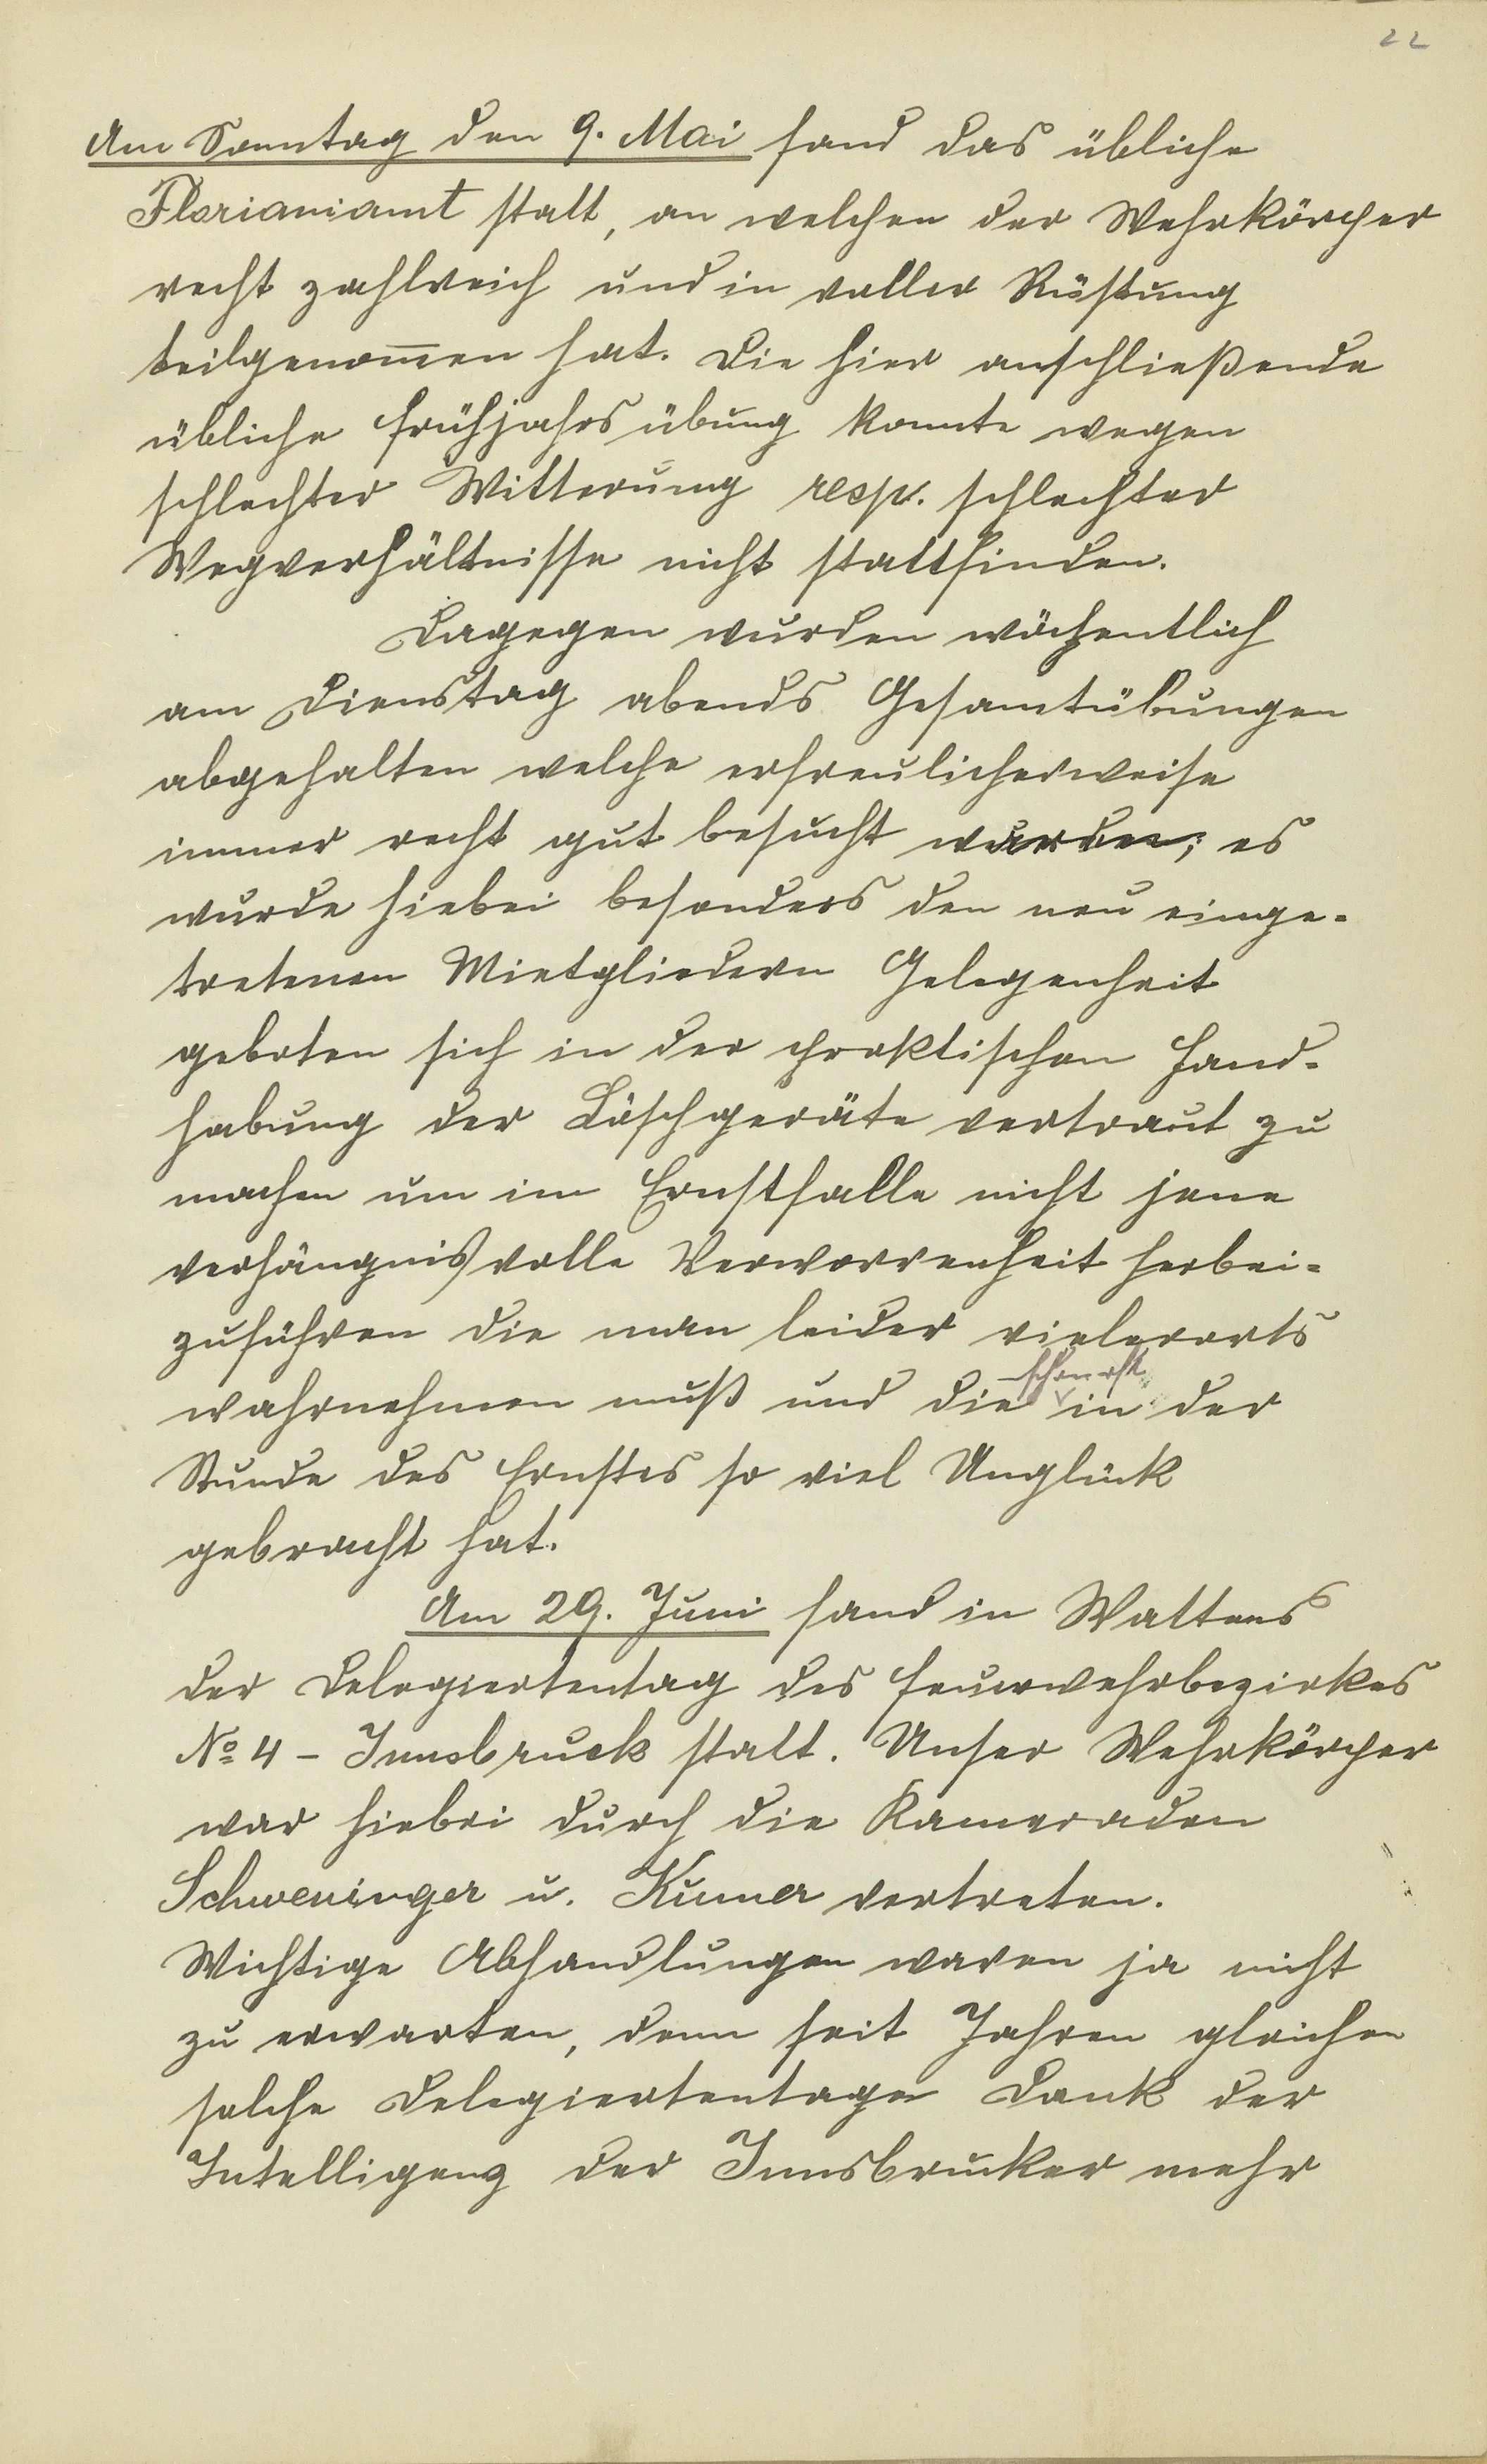 22
Am Sonntag den 9. Mai fand das übliche
Florianiamt statt, an welchen der Wehrkörper
recht zahlreich und in voller Rüstung
teilgenom̅en hat. Die hier anschließende
übliche Frühjahrsübung konnte wegen
schlechter Witterung resp. schlechter
Wegverhältnisse nicht stattfinden.
Dagegen wurden wöchentlich
am Dienstag abends Gesamtübungen
abgehalten welche erfreulicherweise
immer recht gut besucht wurden; es
wurde hiebei besonders den neu einge-
tretenen Mietgliedern Gelegenheit
geboten sich in der praktischen Hand-
habung der Löschgeräte vertraut zu
machen um im Ernstfalle nicht jene
verhängnisvolle Verworrenheit herbei-
zuführen die man leider vielerorts
schon oft
wahrnehmen muß und die in der
Stunde des Ernstes so viel Unglück
gebracht hat.
Am 29. Juni fand in Wattens
der Delegiertentag des Feuerwehrbezirkes
No 4 - Innsbruck statt. Unser Wehrkörper
war hiebei durch die Kameraden
Schweninger u. Kuner vertreten.
Wichtige Abhandlungen waren ja nicht
zu erwarten, denn seit Jahren gleichen
solche Delegiertentage Dank der
Intelligenz der Innsbrucker mehr